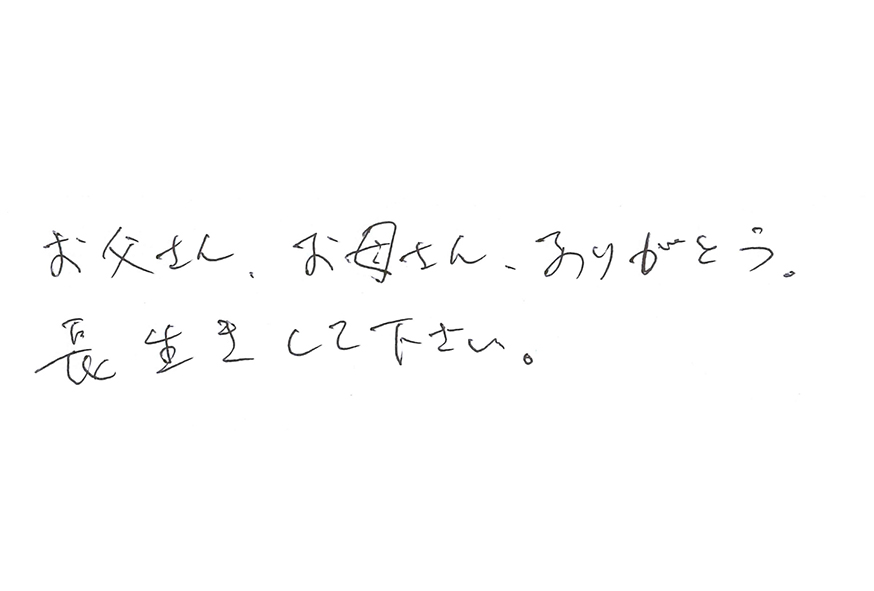 お父さん、お母さん、ありがとう。
長生きして下さい。